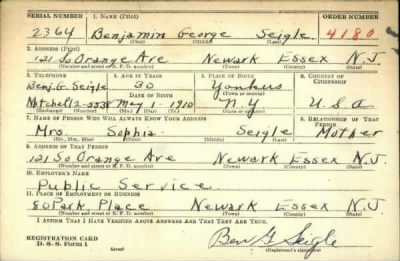 SERIAL NUMBER 1. NAME (Print) ORDER NUMBER
2364 Benjamin George Seigle 4180
(First) (Middle) (Last)
2. ADDRESS (Print)
121 So Orange Ave Newark Essex N.J
(Number and street or R. F. D. number) (Town) (County) (State)
3. TELEPHONE 4. AGE IN YEARS 5. PLACE OF BIRTH 6. COUNTRY OF CITIZENSHIP
Benj. G Seigle 30 Yonkus
DATE OF BIRTH (Town or county)
Mitchell 2-5538 May 1 1910 N.Y U.S.A
(Exchange) (Number) (Mo.) (Day) (Yr.) (State or country)
7. NAME OF PERSON WHO WILL ALWAYS KNOW YOUR ADDRESS 8. RELATIONSHIP OF THAT PERSON
Mrs. Sophia Seigle Mother
(Mr., Mrs., Miss) (First) (Middle) (Last)
9. ADDRESS OF THAT PERSON
121 So. Orange Ave Newark Essex N.J
(Number and street or R. F. D. number) (Town) (County) (State)
10. EMPLOYER'S NAME
Public Service
11. PLACE OF EMPLOYMENT OR BUSINESS
80 Park Place Newark Essex N.J
(Number and street or R. F. D. number) (Town) (County) (State)
I AFFIRM THAT I HAVE VERIFIED ABOVE ANSWERS AND THAT THEY ARE TRUE.
REGISTRATION CARD
D. S. S. Form 1 (over) Ben G Seigle
(Registrant's signature)